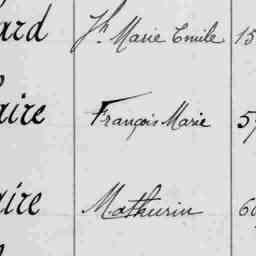 ard Jh Marie Emile 15
aire François Marie 5
aire Mathurin 60